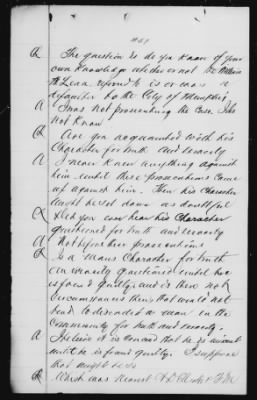 Q The question is do you know of your
own knowledge whether or not Mr William
McLean referred to is or was a
defaulter to the City of Memphis
A I was not prosecuting the Case. I do
not know
Q Are you acquainted with his
Character for truth and veracity
A I never knew anything against
him until these prosecutions came
up against him. Then his Character
might be set down as doubtful
Q Did you ever hear his Character
questioned for truth and veracity
A Not before these prosecutions
Q Is a mans Character for truth
and veracity questioned until he
is found guilty and is there not
Circumstances then that would not
tend to discredit a man in the
Community for truth and veracity.
A I believe it is
until he is found guilty. I suppose
that might be so
Q Which was